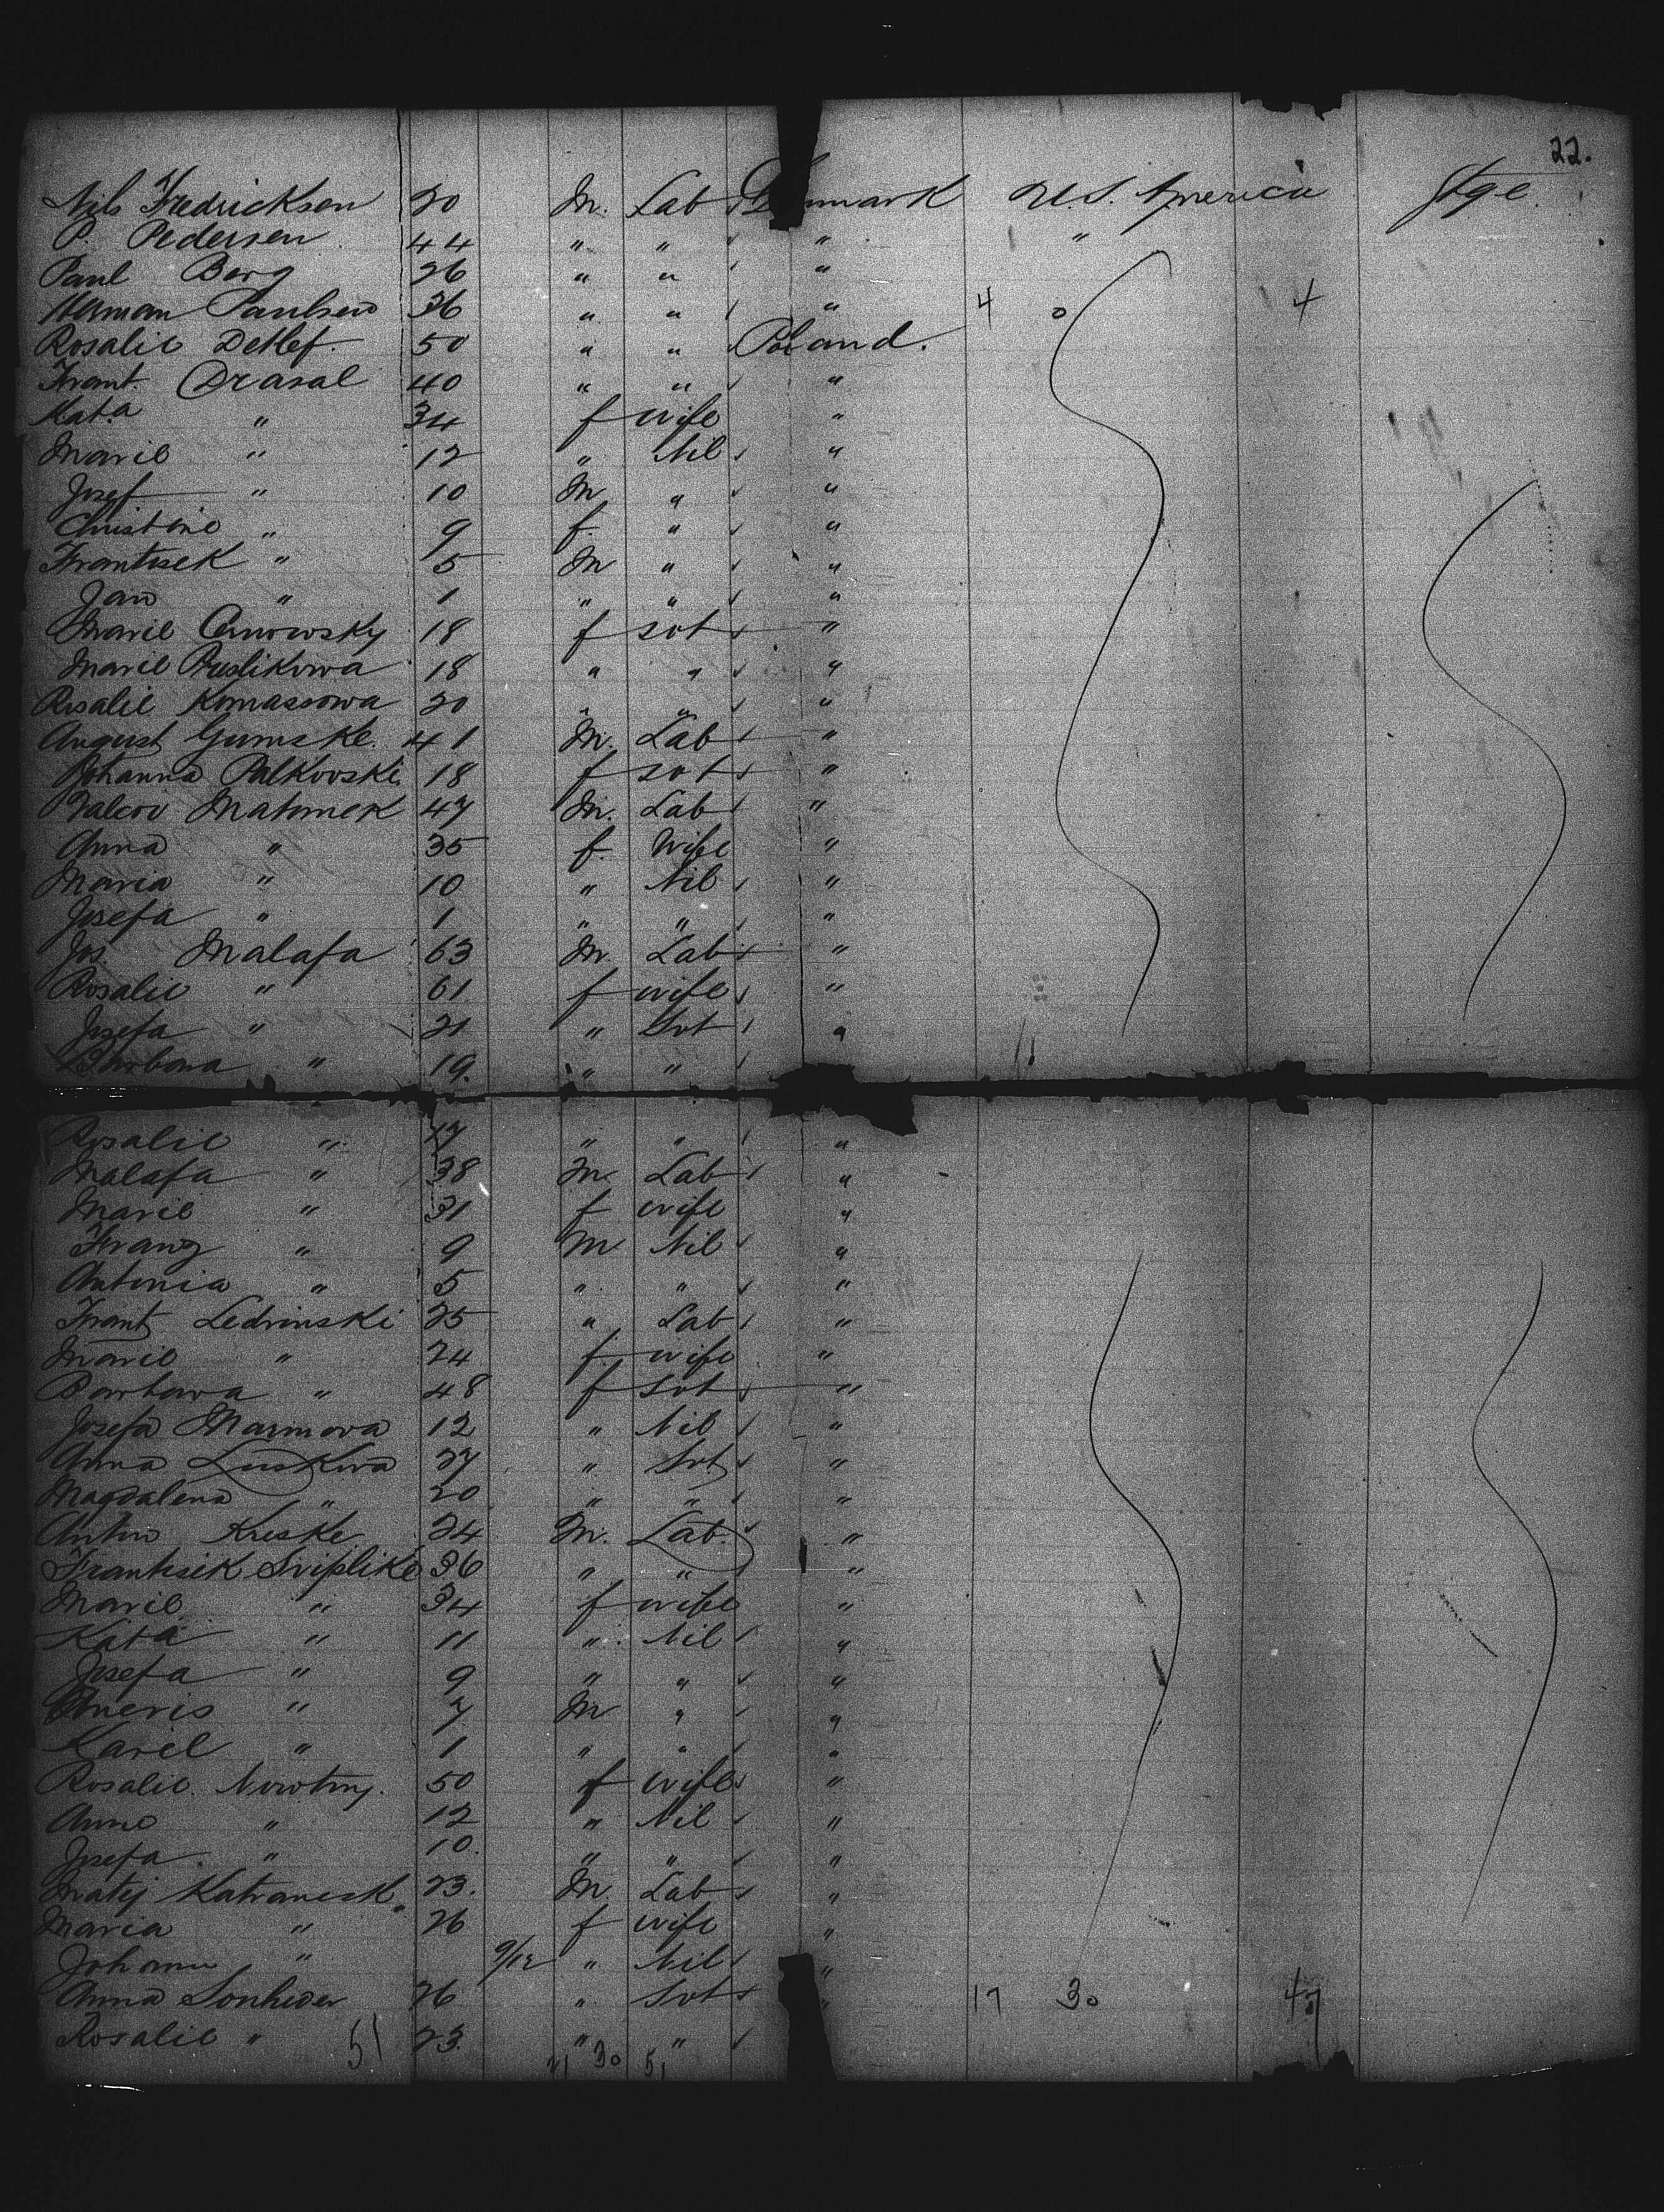 22.
Nils Fredricksen 20 M. Lab Denmark U.S. America Stge.
P. Pedersen 44 " " " "
Paul Berg 26 " " "
Herman Paulsen 36 " " " 4 0 4
Rosalie Detlef. 50 " " Poland.
Frant Drasal 40 " " "
Kata " 34 f wife "
Marie " 12 " Nil "
Josef " 10 M " "
Christine " 9 f. " "
Frantisek " 5 M " "
Jan " 1 " " "
Marie 18 f svt "
Marie 18 " " "
Rosalie Komassowa 20 " " "
August Gumske. 41 M. Lab "
Johanna Palkovski 18 f svt "
Matomek 47 M. Lab "
Anna " 35 f. Wife "
Maria " 10 " Nil "
Josefa " 1 " " "
Jos Malafa 63 M. Lab "
Rosalie " 61 f wife "
Josefa " 21 " Svt "
Barbara " 19. " "
Rosalie " 17 " " "
Malafa " 38 M. Lab "
Marie " 31 f wife "
Franz " 9 M Nil "
Antonia " 5 " " "
Frant Ledvinski 25 " Lab "
Marie " 24 f. wife "
Barbara " 48 f svt "
Josefa Marmova 12 " Nil "
Anna Luskova 27 " Svt "
Magdalena " 20 " " "
Anton Kreske 24 M. Lab. "
Frantisek 36 " " "
Marie " 34 f wife "
Kata " 11 " Nil "
Josefa " 9 " " "
" 7 M " "
Karel " 1 " " "
Rosalie Nowtny. 50 f wife "
Anna " 12 " Nil "
Josefa " 10. " " "
Matej 23. M. Lab "
Maria " 26 f wife "
Johann " 9/12 " Nil "
Anna 26 " Svt " 17 30 47
Rosalie " 51 23. " "
21 30 51